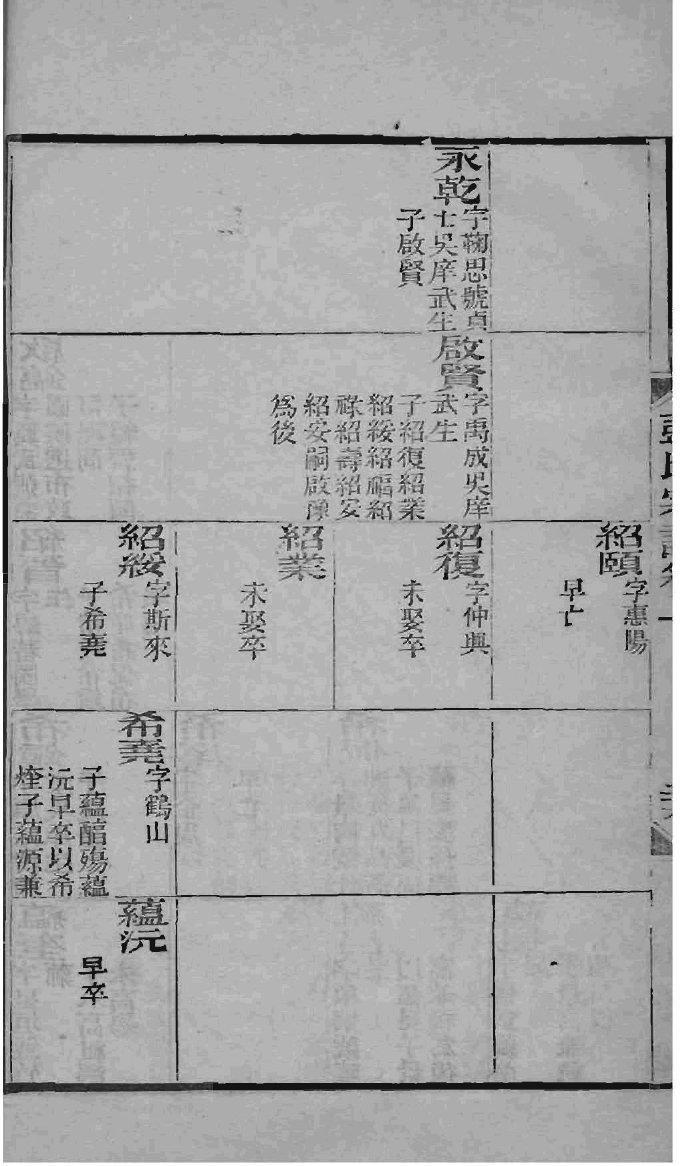 永乾
字鞠思號貞
士吳庠武生
子啟賢
啟賢
字禹成吳庠
武生
子紹復紹業
紹綏紹福紹
祿紹壽紹安
紹安嗣啟豫
為後
紹頤
字惠陽
早亡
紹復
字仲興
未娶卒
紹業
未娶卒
紹綏
字斯來
子希堯
希堯
字鶴山
子蘊醅殤蘊
沅早卒以希
煃子蘊源兼
蘊沅
早卒